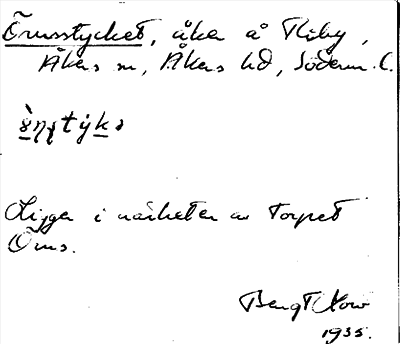 Örnsstycket, åker å Tliby,
Åkers sn, Åkers hd, Söderm. l.
Ligger i närheten av torpet
Örns.
Bengt
1935.